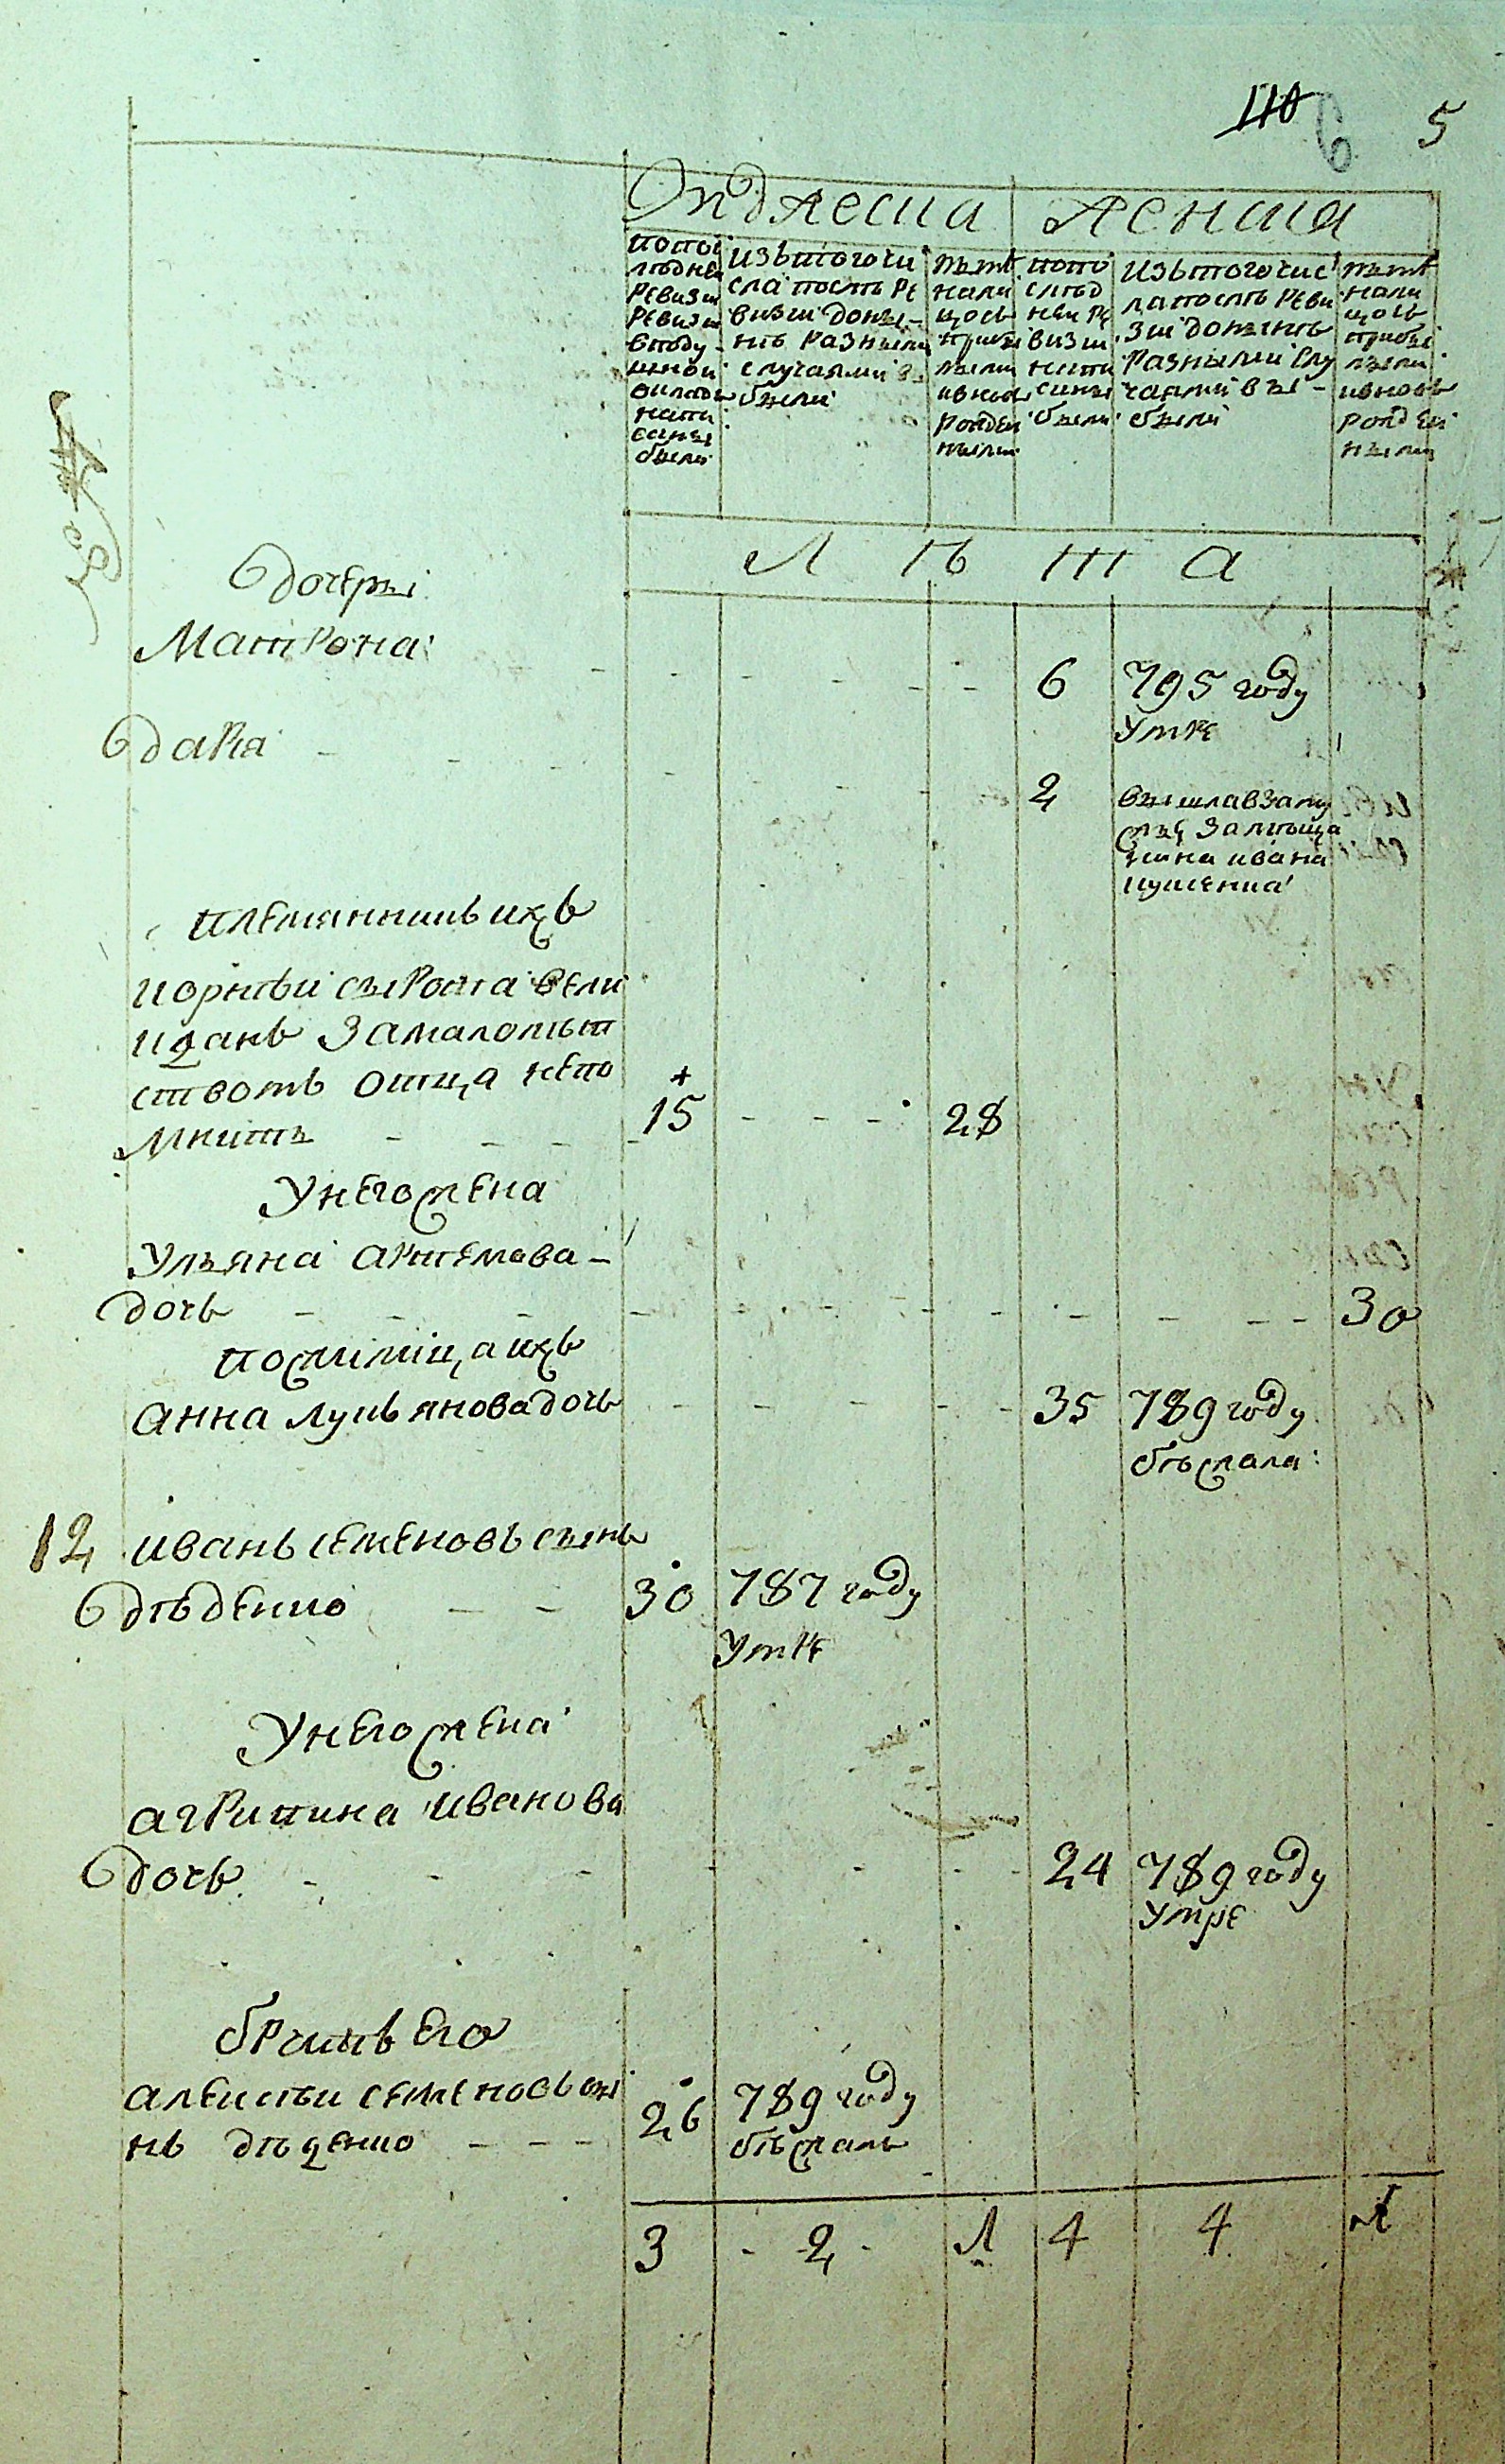 110 6 5
Мужеска женска
попос
ледней
ревизи
ревизи
вподу
шной
окладъ
напи
саны
были
изътогочи
сла послѣ ре
визии доны-
нѣ разными
случаями вы
были
лѣтѣ
нали
цось
прибы
лыми
ивновь
рожден
ными
попо
слѣд
неи ре
визии
напи
саны
были
изътогочис
ла послѣ реви
зии донынѣ
разными слу
чаями вы-
были
лѣтѣ
нали
цось
прибы
лыми
ивновь
рожден
ными
Л Ѣ Т А
дочеры
Матрона 6 795 году
умре
дария 2 вышлавзаму
жъ замѣща
нина ивана
племянникъ ихъ
корнѣи сирота вели
кдань замалолѣт
ствомъ отца непо
мнитъ 15 28
Унегожена
Ульяна артемова-
дочь 30
пожилица ихъ
анна лукьяновадочь 35 789 году
бѣжала
12 иванъ семеновъ сынъ
дѣденко 30 787 году
умре
Унегожена
агрипина иванова
дочь 24 789 году
умре
братъ его
алексѣи семеновъ сы
нъ дѣденко 26 789 году
бѣжалъ
3 - 2 - 1 4 4 1